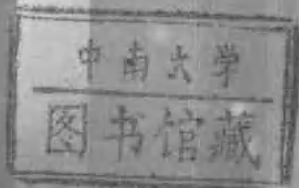 中南大学
图书馆藏